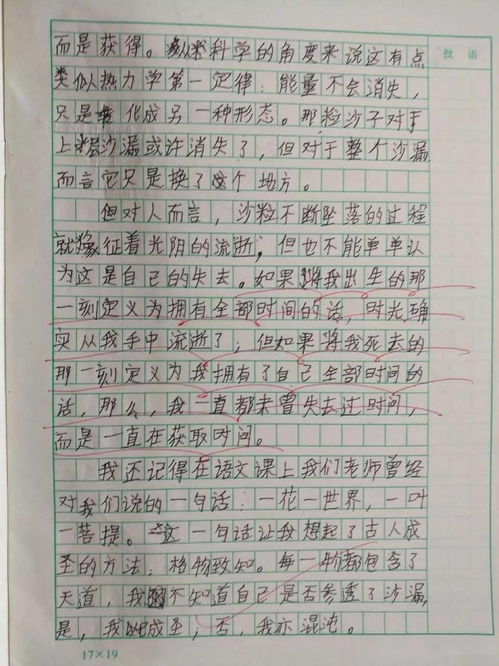 批语
而是获得。从科学的角度来说这有点
类似热力学第一定律：能量不会消失，
只是转化成另一种形态。那粒沙子对于
上层沙漏或许消失了，但对于整个沙漏
而言它只是换了个地方。
但对人而言，沙粒不断坠落的过程
就像征着光阴的流逝，但也不能单单认
为这是自己的失去。如果将我出生的那
一刻定义为拥有全部时间的话，时光确
实从我手中流逝了；但如果将我死去的
那一刻定义为我拥有了自己全部时间的
话，那么，我一直都未曾失去过时间，
而是一直在获取时间。
我还记得在语文课上我们老师曾经
对我们说的一句话：一花一世界，一叶
一菩提。这一句话让我想起了古人成
圣的方法：格物致知。每一物都包含了
天道，我不知道自己是否参透了沙漏，
是，我成圣，否，我亦混沌。
17×19